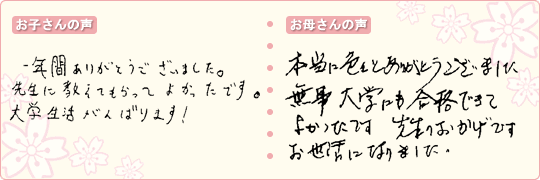 お子さんの声
一年間ありがとうございました。
先生に教えてもらって よかったです。
大学生活がんばります!
お母さんの声
本当に色々とありがとうございました
無事 大学にも合格できて
よかったです 先生のおかげです
お世話になりました.